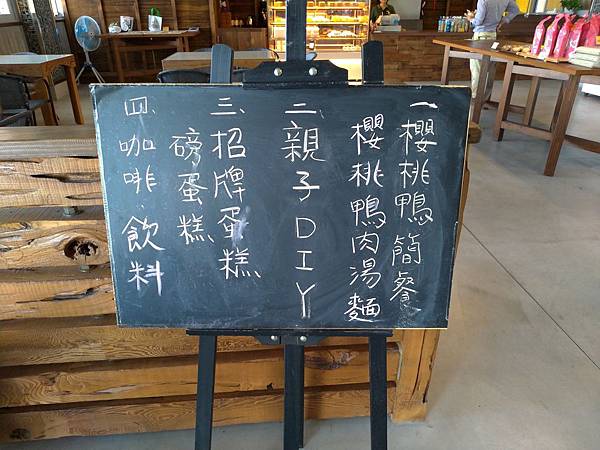 一、櫻桃鴨簡餐
櫻桃鴨肉湯麵
二、親子DIY
三、招牌蛋糕、
磅蛋糕
四、咖啡、飲料